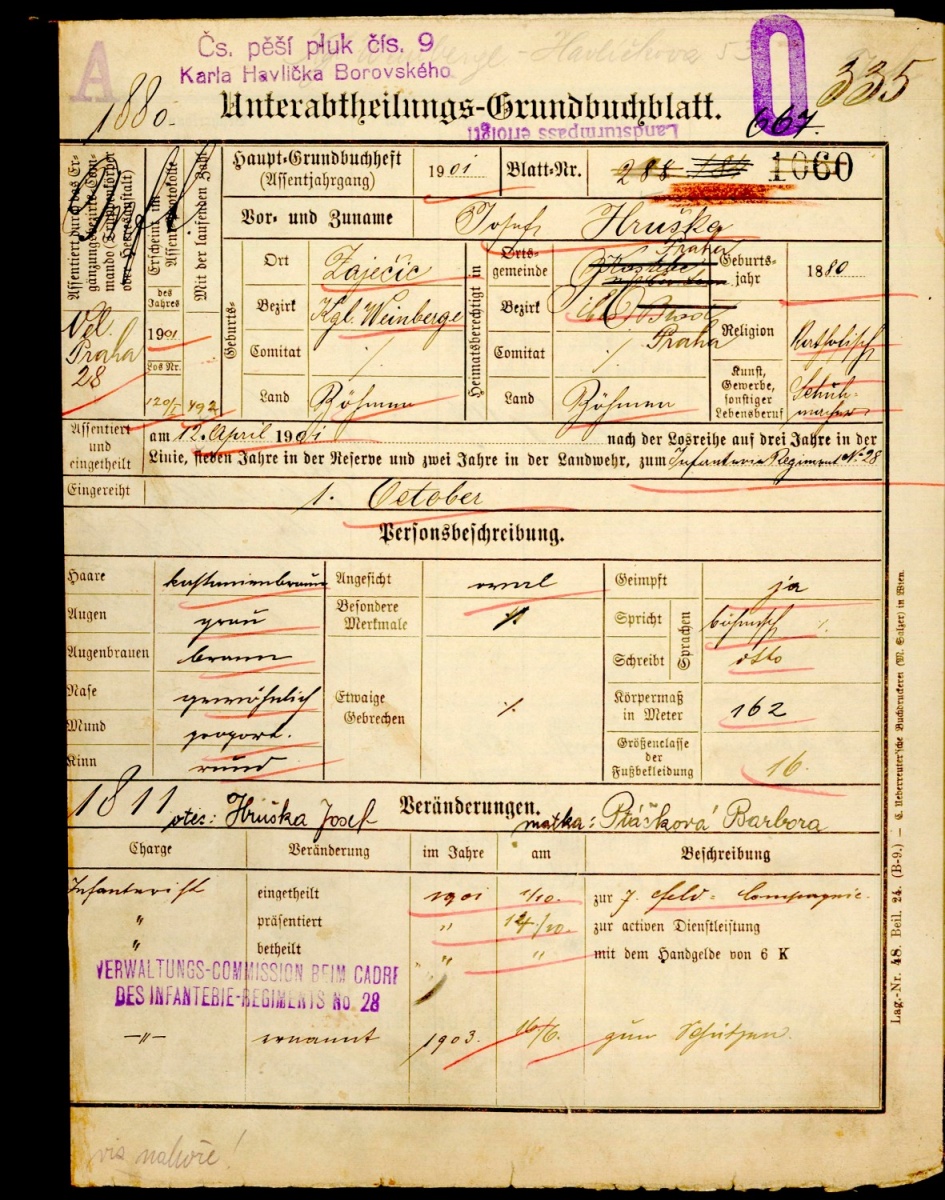 A
Čs. pěší pluk čís. 9
Karla Havlíčka Borovského
Havlíčkova 53
335
1880.
Unterabtheilungs-Grundbuchblatt.
Landsturmpass erfolgt!
667.
Assentiert durch das Ergänzungsbezirks-Commando (Truppenkörper oder Heeresanstalt)
Vel. Praha 28
Erscheint im Assentprotokolle
des Jahres
1901
Los Nr.
120/I
Mit der laufenden Zahl
492
Haupt-Grundbuchheft
(Assentjahrgang)
1901
Blatt-Nr.
288
1060
Vor- und Zuname
Josef Hruška
Geburts-
Ort
Zaječic
Bezirk
Kgl. Weinberge
Comitat
Land
Böhmen
Heimatsberechtigt in
Ortsgemeinde
Praha
Bezirk
Praha
Comitat
Land
Böhmen
Geburtsjahr
1880
Religion
Katholisch
Kunst, Gewerbe, sonstiger Lebensberuf
Schuhmacher
Assentiert und eingetheilt
am 12. April 1901 nach der Losreihe auf drei Jahre in der
Linie, sieben Jahre in der Reserve und zwei Jahre in der Landwehr, zum Infanterie Regiment No 28
Eingereiht
1. October
Personsbeschreibung.
Haare
kastanienbraun
Augen
grau
Augenbrauen
braun
Nase
gewöhnlich
Mund
proport.
Kinn
rund
Angesicht
oval
Besondere Merkmale
Etwaige Gebrechen
Geimpft
ja
Spricht
böhmisch
Schreibt
dtto
Sprachen
Körpermaß in Meter
162
Größenclasse der Fußbekleidung
16.
1811
otec: Hruška Josef
Veränderungen.
matka: Ptáčková Barbora
Charge Veränderung im Jahre am Beschreibung
Infanterist eingetheilt 1901 1/10. zur 7. Feld-Compagnie.
" präsentiert " 12/10. zur activen Dienstleistung
" betheilt " " mit dem Handgelde von 6 K
VERWALTUNGS-COMMISSION BEIM CADRE
DES INFANTERIE-REGIMENTS No. 28
-"- ernannt 1903. 16/6. zum Schützen.
viz nahoře!
Lag.-Nr. 48. Beil. 24. (B-9.) — C. Ueberreuter'sche Buchdruckerei (M. Salzer) in Wien.